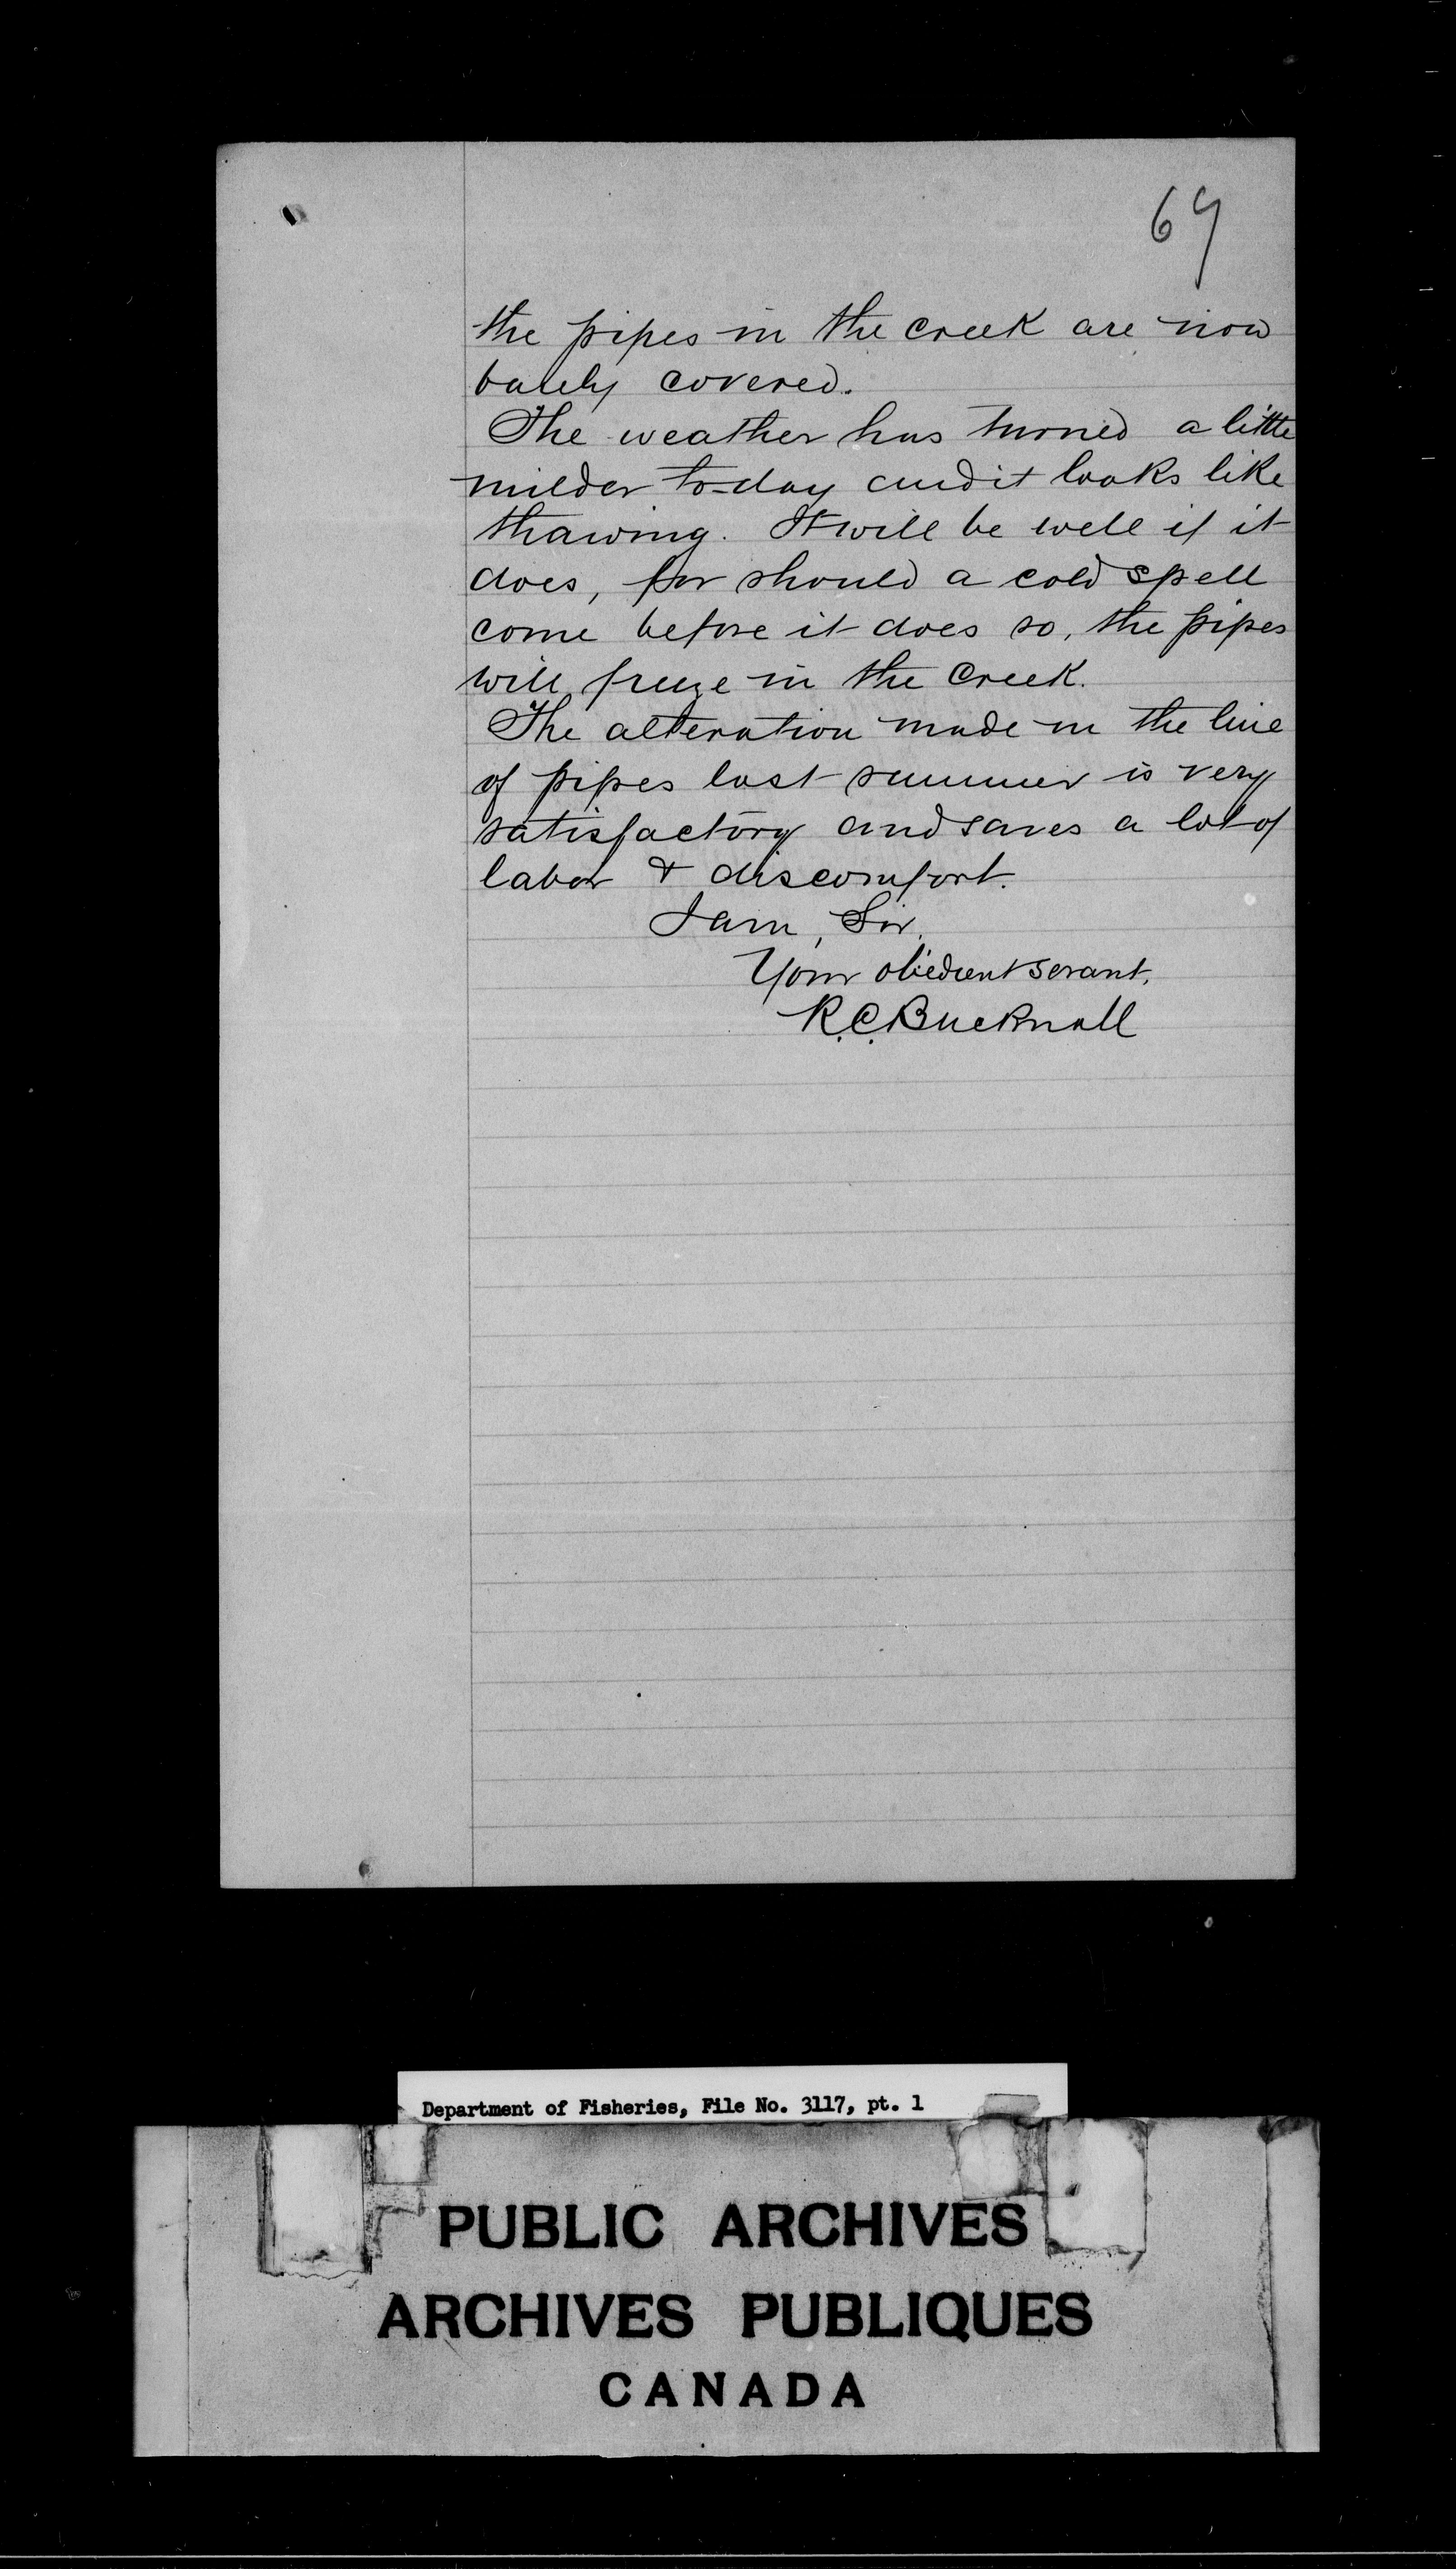 69
the pipes in the creek are now
barely covered.
The weather has turned a little
milder to-day and it looks like
thawing. It will be well if it
does, for should a cold spell
come before it does so, the pipes
will freeze in the creek.
The alteration made in the line
of pipes last summer is very
satisfactory and saves a lot of
labor & discomfort.
I am, Sir,
Your obedient servant,
R.C. Bucknall
Department of Fisheries, File No. 3117, pt. 1
PUBLIC ARCHIVES
ARCHIVES PUBLIQUES
CANADA